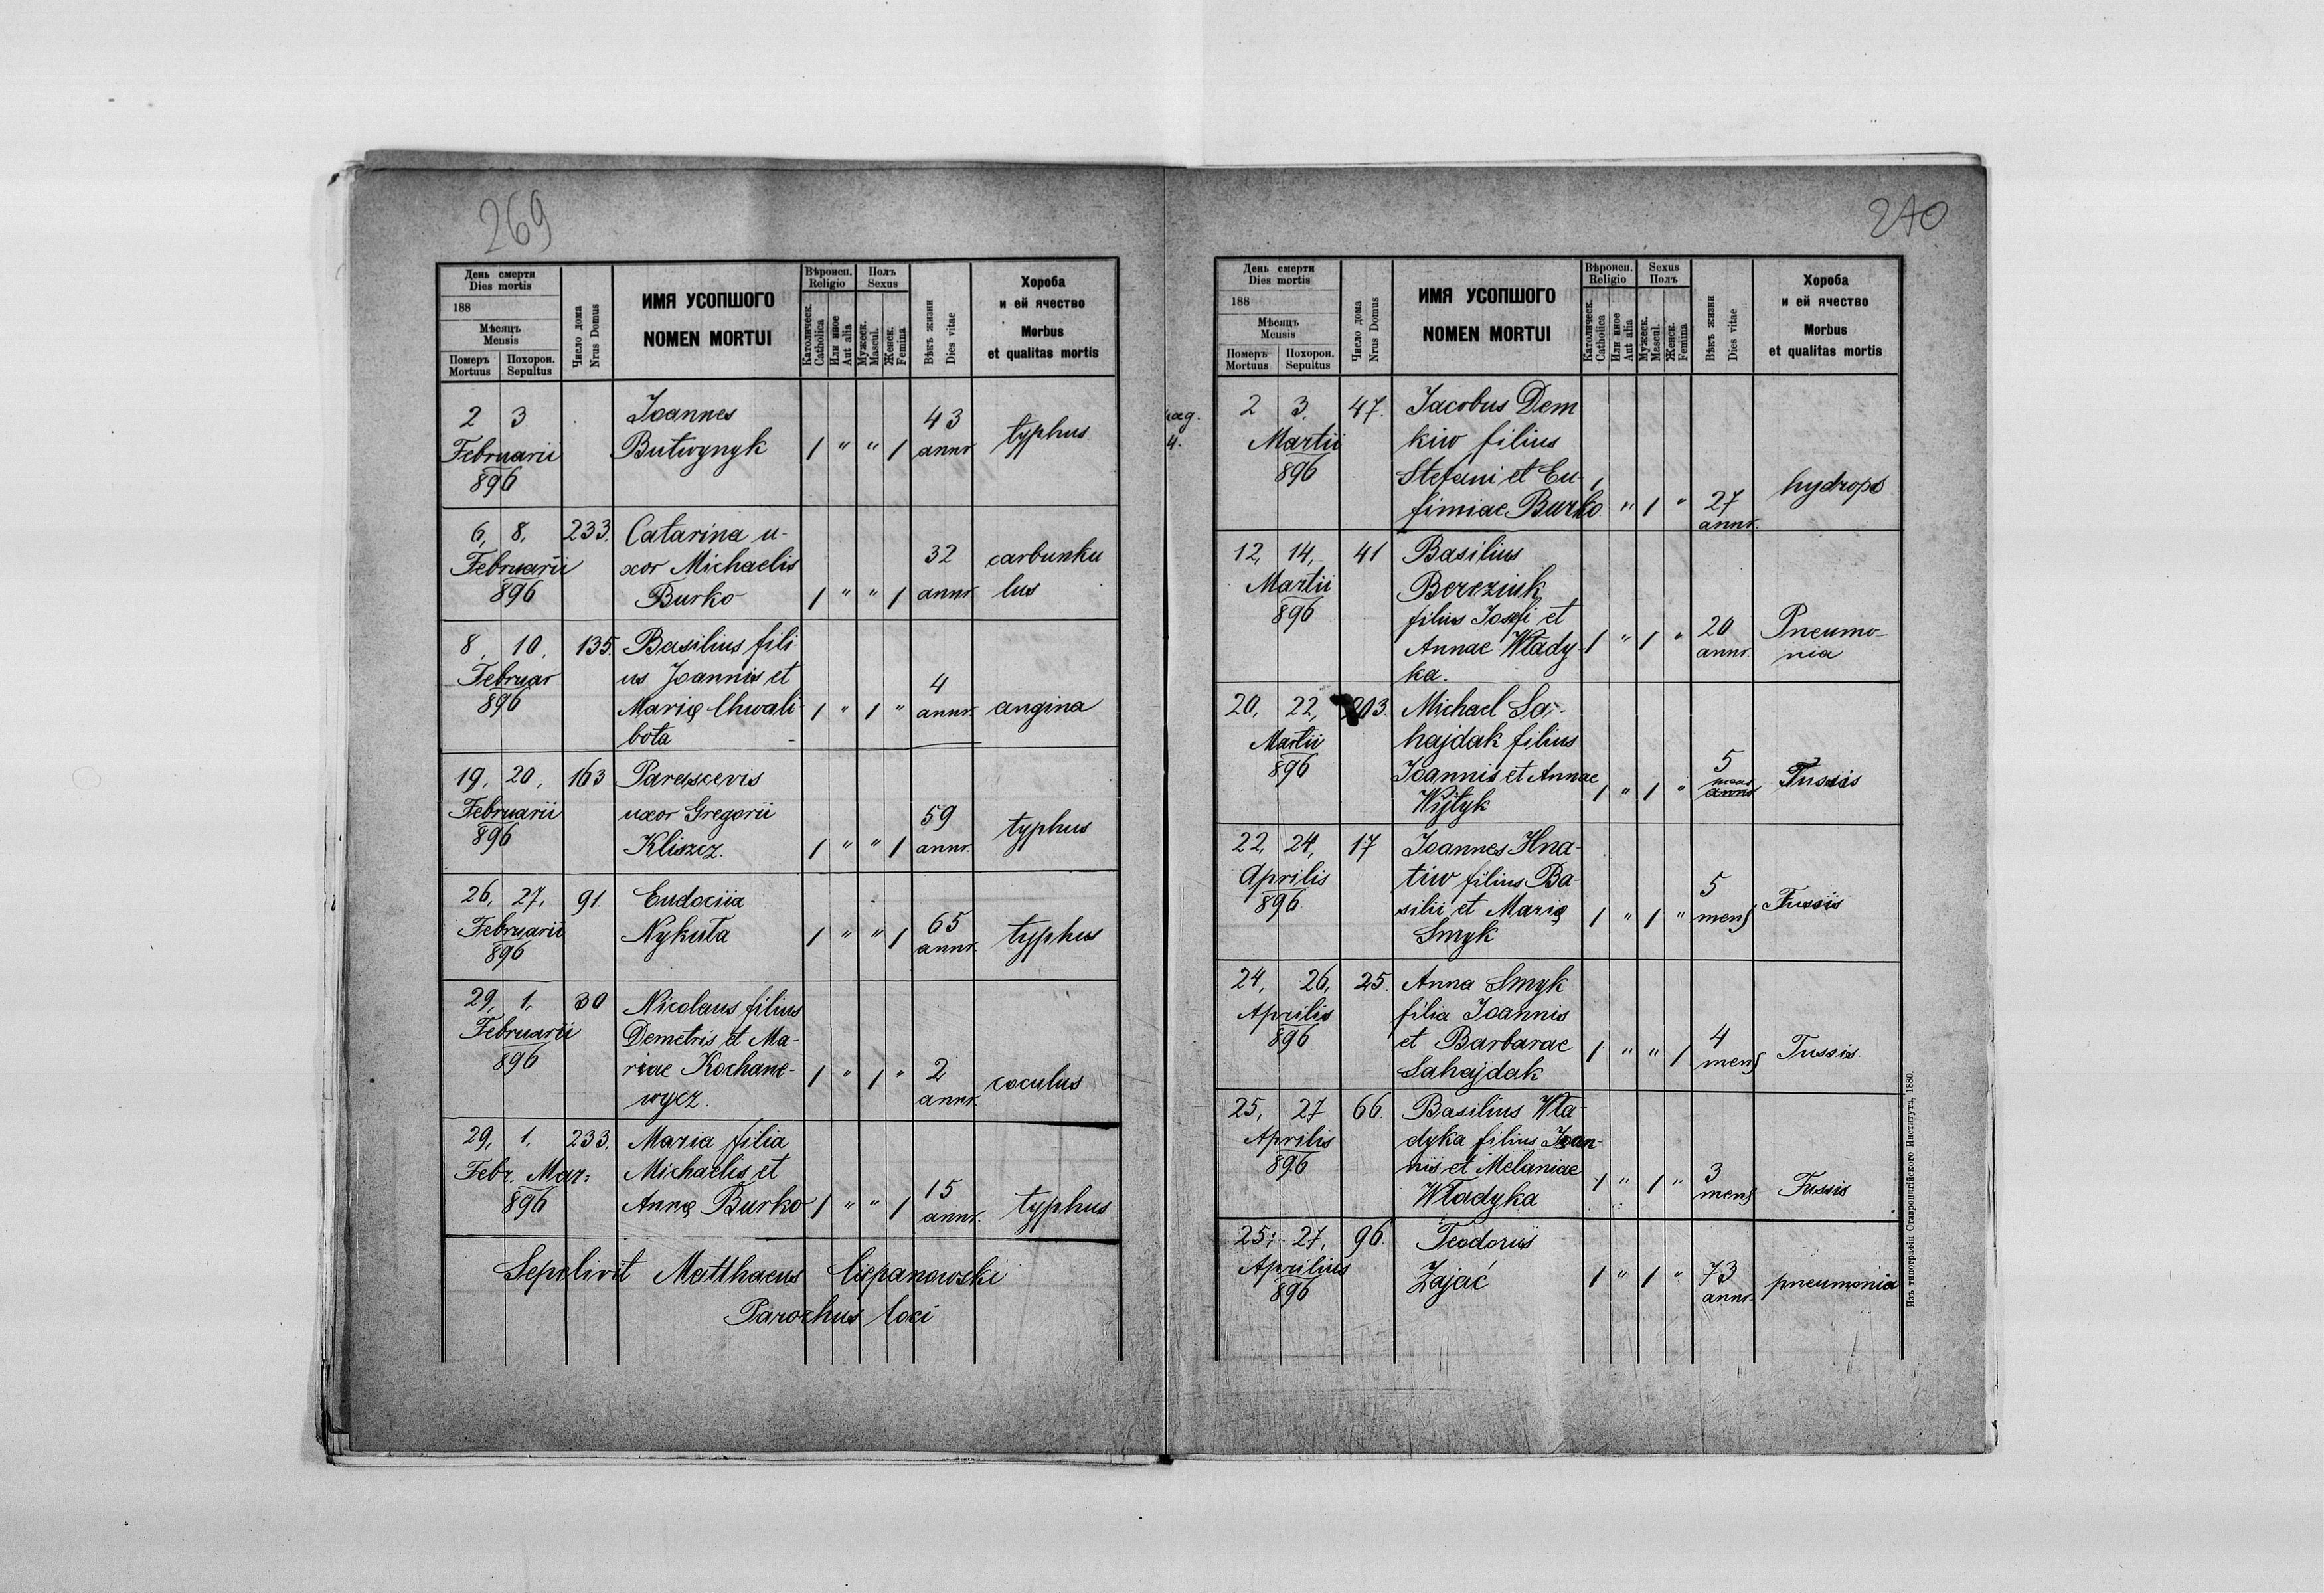 269
День смерти
Dies mortis
188
Мѣсяцъ
Mensis
Померъ
Mortuus
Похорон.
Sepultus
Число дома
Nrus Domus
ИМЯ УСОПШОГО
NOMEN MORTUI
Вѣроисп.
Religio
Католическ.
Catholica
Или иное
Aut alia
Полъ
Sexus
Мужеск.
Mascul.
Женск.
Femina
Вѣкъ жизни
Dies vitae
Хороба
и ей ячество
Morbus
et qualitas mortis
2 3 Joannes 43
Februarii Butwynyk 1 " " 1 annr. typhus
896
6, 8, 233. Catarina u-
Februarii xor Michaelis 32 carbunku
896 Burko 1 " " 1 annr. lus
8, 10, 135. Basilius fili
Februar us Joannis et 4
896 Marię Chwali- 1 " 1 " annr. angina
bota
19, 20, 163 Parascevis
Februarii uxor Gregorii 59
896 Kliszcz. 1 " " 1 annr. typhus
26, 27, 91. Eudociia
Februarii Nykuta 1 " " 1 65 annr. typhus
896
29, 1, 30 Nicolaus filius
Februarii Demetris et Ma-
896 riae Kochane- 1 " 1 " 2 coculus
wycz. annr.
29, 1. 233. Maria filia
Febr. Mar: Michaelis et 15
896 Annę Burko 1 " " 1 annr. typhus
Sepelivit Matthaeus Ciepanowski
Parochus loci
270
День смерти
Dies mortis
188
Мѣсяцъ
Mensis
Померъ
Mortuus
Похорон.
Sepultus
Число дома
Nrus Domus
ИМЯ УСОПШОГО
NOMEN MORTUI
Вѣроисп.
Religio
Католическ.
Catholica
Или иное
Aut alia
Sexus
Полъ
Мужеск.
Mascul.
Женск.
Femina
Вѣкъ жизни
Dies vitae
Хороба
и ей ячество
Morbus
et qualitas mortis
pag.
4.
2 3. 47. Jacobus Dem
Martii kiw filius
896 Stefani et Eu- hydrops
fimiae Burko. 1 " 1 " 27
annr.
12, 14, 41 Basilius
Martii Bereziuk
896 filius Josefi et
Annae Wlady- 1 " 1 " 20 Pneumo-
ka. annr. nia
20, 22, 203. Michael Sa-
Martii hajdak filius
896 Joannis et Annae 5 Tussis
Wijtyk 1 " 1 " mens
22, 24, 17 Joannes Hna-
Aprilis tiw filius Ba- 5
896 silii et Marię 1 " 1 " mens Tussis
Smyk
24, 26, 25. Anna Smyk
Aprilis filia Joannis
896 et Barbarae 1 " " 1 4 Tussis.
Sahajdak mens
25, 27 66. Basilius Wła-
Aprilis dyka filius Joan-
896 nis et Melaniae 1 " 1 " 3 Tussis
Władyka mens
25, 27, 96. Teodorus
Aprilius Zajać 1 " 1 " 73 pneumonia
896 annr.
Изъ типографіи Ставропигійского Института, 1880.